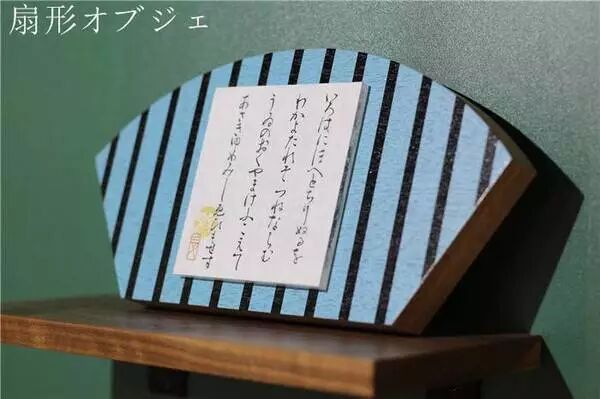 扇形オブジェ
いろはにほへとちりぬるを
わかよたれそつねならむ
うゐのおくやまけふこえて
あさきゆめみしゑひもせす